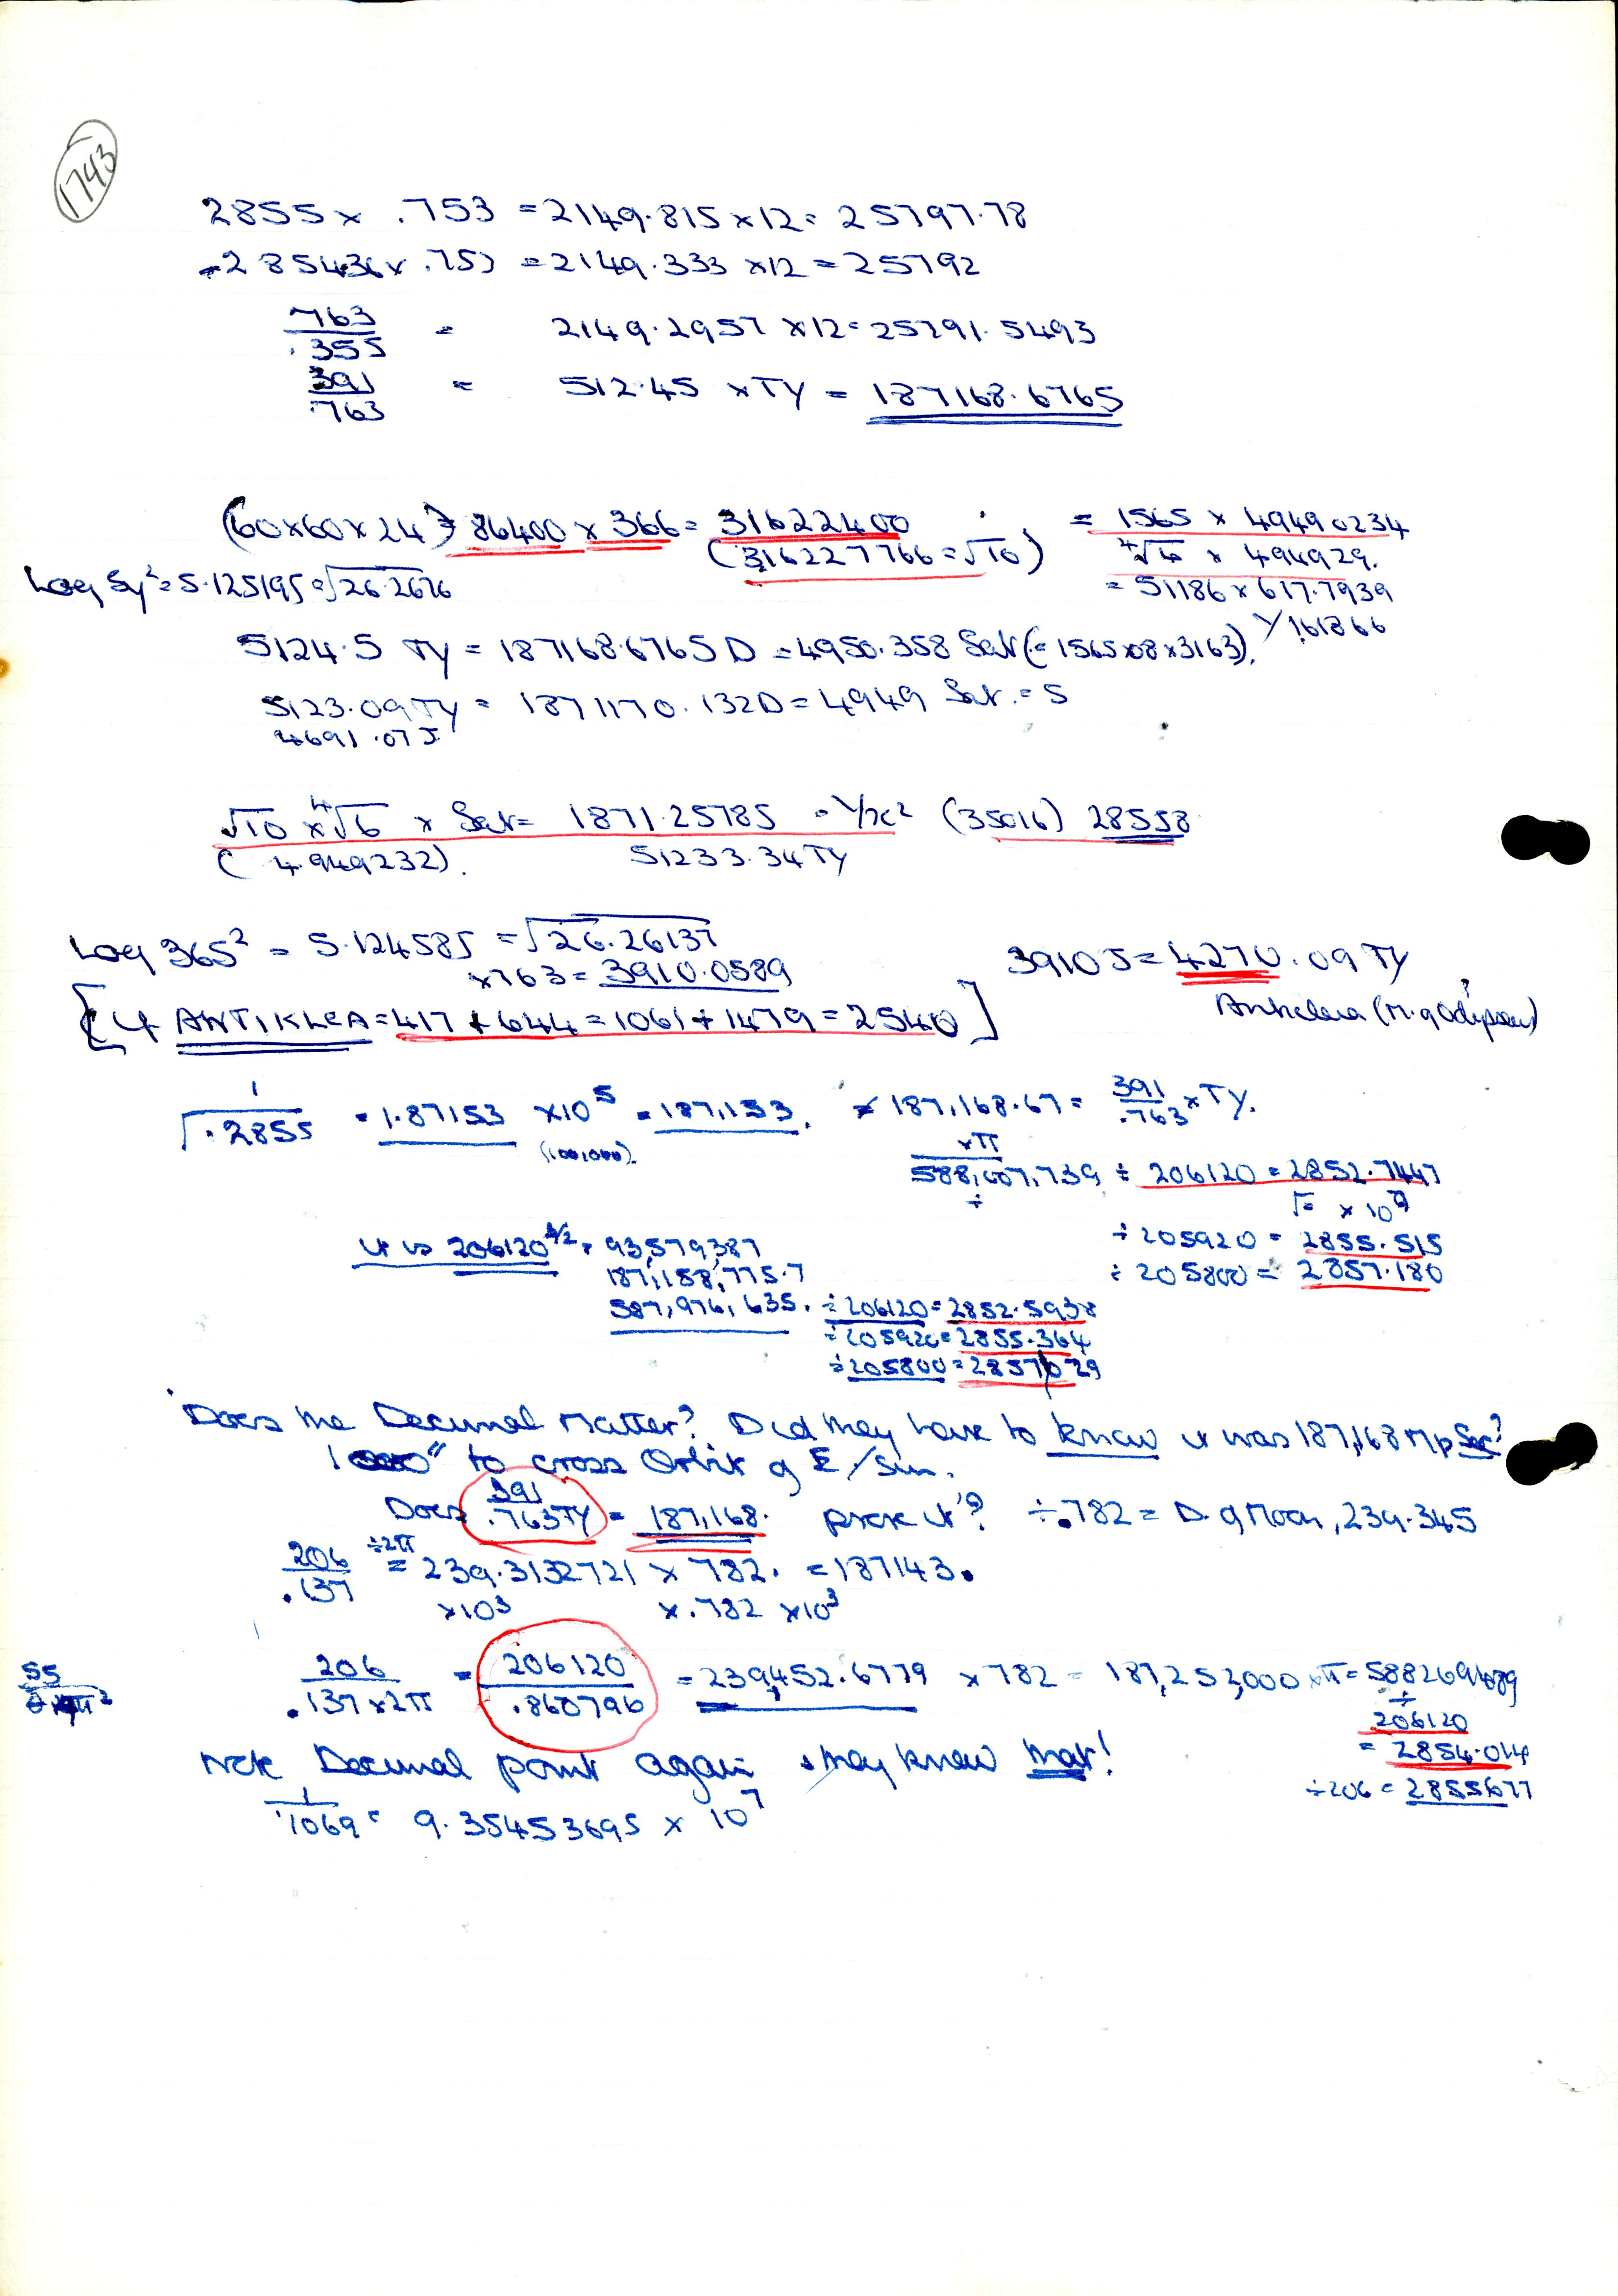 1743
2855 × .753 = 2149.815 × 12 = 25797.78
285436 × .753 = 2149.333 × 12 = 25792
763/.355 = 2149.2957 × 12 = 25791.5493
391/.763 = 512.45 × TY = 187168.6765
(60×60×24) = 86400 × 366 = 31622400 = 1565 × 49490234
(316227766 = √10) ∜6 × 494929.
Log Sy² = 5.125195 = √26.2676 = 51186 × 617.7939
5124.5 TY = 187168.6765 D = 4950.358 Sat (= 1565×08×3163). Y 1.61866
5123.09 TY = 1871170.132D = 4949 Sat. = S
4691.07 J
√10 × ∜6 × Sat = 1871.25785 = 1/x² (35016) 28558
(4.949232). 51233.34 TY
Log 365² = 5.124585 = √26.26137
×763 = 3910.0589 3910 J = 4270.09 TY
[4 ANTIKLEA = 417 + 644 = 1061 + 1479 = 2540]
1/√.2855 = 1.87153 × 10⁵ = 187,153. ≠ 187,168.67 = 391/.763 × TY.
(100,000). ×π
588,007,739 ÷ 206120 = 2852.7447
√= × 10⁹
÷ 205920 = 2855.515
÷ 205800 = 2857.180
It is 206120 = 93,579,387
187,158,775.7
587,976,635. ÷ 206120 = 2852.5938
÷ 205920 = 2855.364
÷ 205800 = 2857029
Does the Decimal Matter? Did they have to know it was 187,168 M p Sec?
1000" to cross Orbit of E/Sun.
Does 391/.763 TY = 187,168. prove it? ÷ .782 = D. of Moon, 239.345
206/.137 ÷2π = 239.3132721 × 782. = 187143.
×10³ ×.782 ×10³
206/.137 × 2π = 206120/.860796 = 239,452.6779 × 782 = 187,252,000 × π = 588269489
÷
206120
= 2854.014
÷ 206 = 2855677
Note Decimal point again & they knew that!
1/.1069 = 9.35453695 × 10⁷